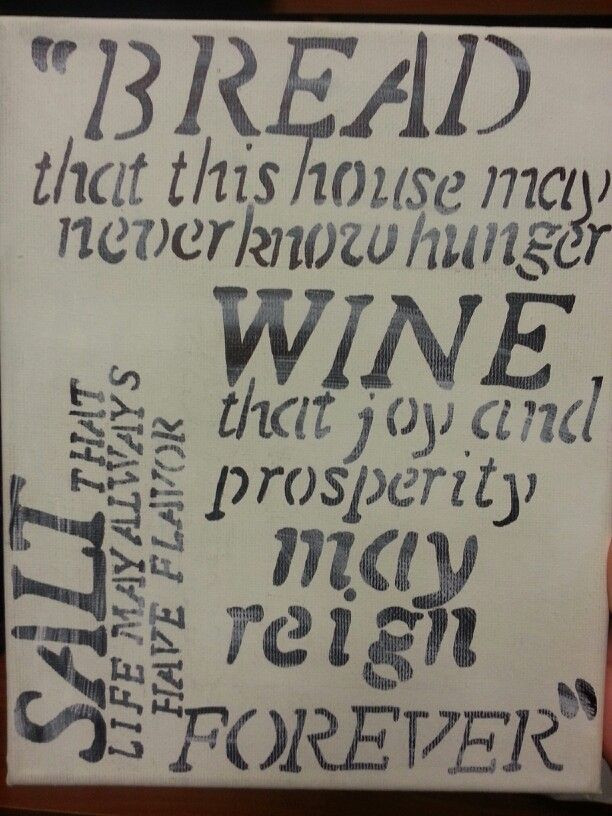 "BREAD
that this house may
never know hunger
SALT THAT
LIFE MAY ALWAYS
HAVE FLAVOR
WINE
that joy and
prosperity
may
reign
FOREVER"